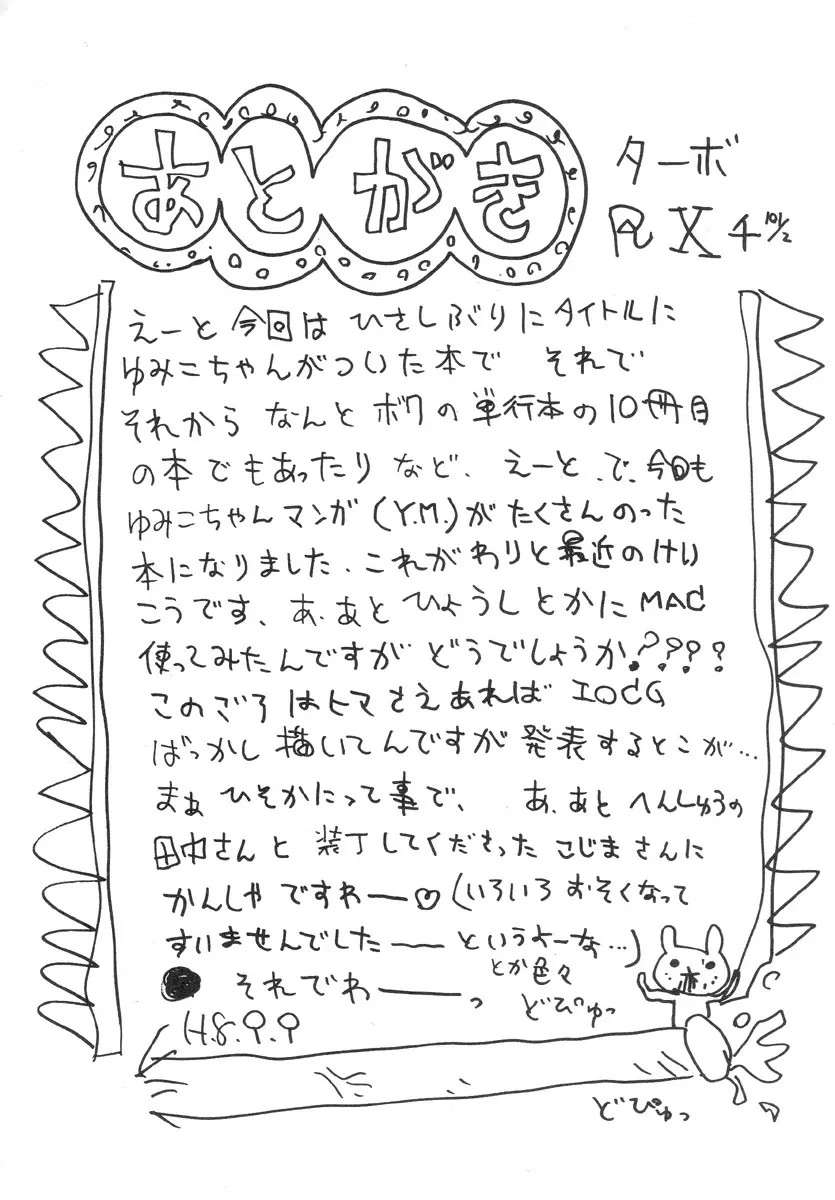 あとがき
ターボ
R X 4 10 1/2
えーと 今回は ひさしぶりに タイトルに
ゆみこちゃんがついた本で それで
それから なんと ボクの単行本の10冊目
の本でもあったり など、えーと、で、今回も
ゆみこちゃんマンガ (Y.M.) がたくさんのった
本になりました、これがわりと最近のけい
こうです、あ、あと ひょうしとかに MAC
使ってみたんですが どうでしょうか????
このごろはヒマさえあれば エロCG
ばっかし 描いてんですが 発表するとこが…
まぁ ひそかにって事で、 あ、あと へんしゅうの
田中さんと 装丁してくださった こじまさんに
かんしゃ ですわー♡ (いろいろ おそくなって
すいませんでしたー というよーな…)
● それでわーっ
とか色々
どぴゅっ
H.8.9.9
どぴゅっ